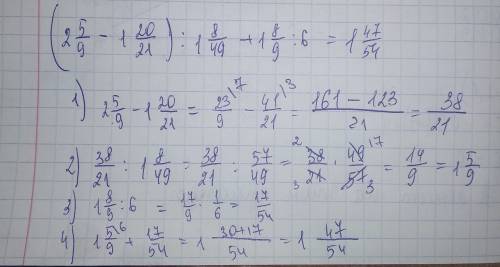 (2 5/9 - 1 20/21) : 1 8/49 + 1 8/9 : 6 = 1 47/54
1) 2 5/9 - 1 20/21 = 23/9 \7 - 41/21 \3 = 161 - 123/21 = 38/21
2) 38/21 : 1 8/49 = 38/21 : 57/49 = 2 38/21 3 · 49/57 17 3 = 14/9 = 1 5/9
3) 1 8/9 : 6 = 17/9 · 1/6 = 17/54
4) 1 5/9 \6 + 17/54 = 1 30+17/54 = 1 47/54